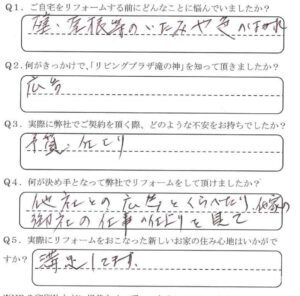 Q1. ご自宅をリフォームする前にどんなことに悩んでいましたか?
壁・屋根等のいたみやさびはがれ
Q2. 何がきっかけで、「リビングプラザ滝の神」を知って頂きましたか?
広告
Q3. 実際に弊社でご契約を頂く際、どのような不安をお持ちでしたか?
予算、仕上り
Q4. 何が決め手となって弊社でリフォームをして頂けましたか?
他社との広告とくらべたり、他家の
御社の仕事の仕上りを見て
Q5. 実際にリフォームをおこなった新しいお家の住み心地はいかがで
すか? 満足してます。